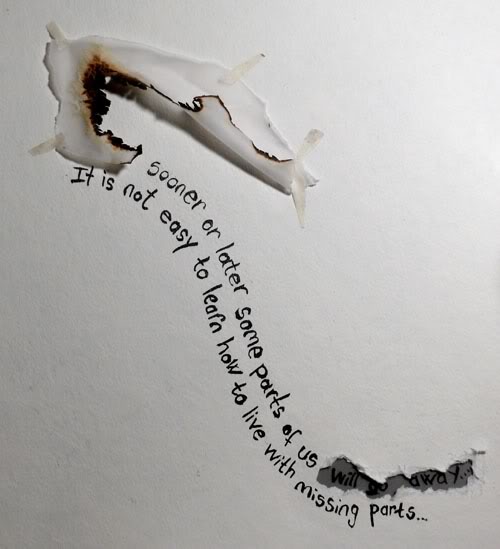 sooner or later some parts of us will go away...
It is not easy to learn how to live with missing parts...